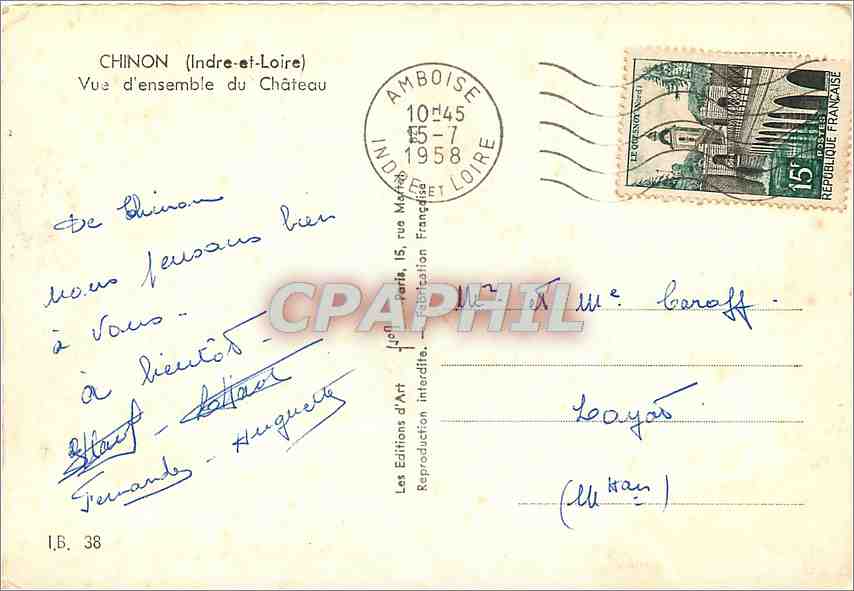 CHINON (Indre-et-Loire)
Vue d'ensemble du Château
AMBOISE
10H45
15-7
1958
INDRE ET LOIRE
LE QUESNOY (Nord)
15F
POSTES
RÉPUBLIQUE FRANÇAISE
De Chinon
nous pensons bien
à vous..
à bientôt -
Fernande - Huguette
Mr et Me Caroff.
Layat
(Mhan)
Les Editions d'Art Yvon Paris, 15, rue Martel
Reproduction interdite. — Fabrication Française
CPAPHIL
I.B. 38